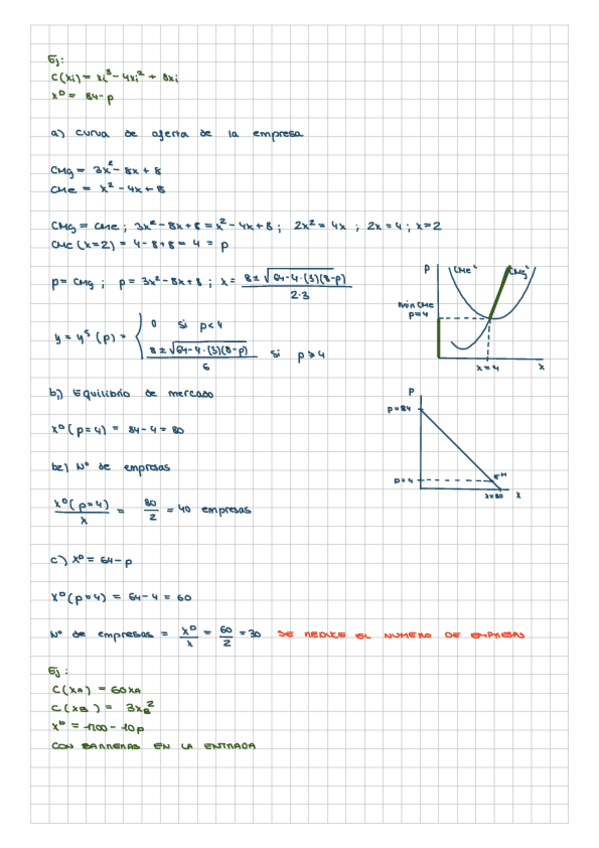 Ej:
C(xi) = xi³ - 4xi² + 8xi
x^D = 84 - p
a) curva de oferta de la empresa
CMg = 3x² - 8x + 8
CMe = x² - 4x + 8
CMg = CMe ; 3x² - 8x + 8 = x² - 4x + 8 ; 2x² = 4x ; 2x = 4 ; x = 2
CMe (x=2) = 4 - 8 + 8 = 4 = p
p = CMg ; p = 3x² - 8x + 8 ; x = (8 ± √(64 - 4·(3)(8-p))) / 2·3
y = y^s (p) = { 0 si p < 4
(8 ± √(64 - 4·(3)(8-p))) / 6 si p ≥ 4
P
CMe
CMg
min CMe
p=4
x=4
x
b1) Equilibrio de mercado
x^D (p=4) = 84 - 4 = 80
P
p=84
p=4
E^M
x=80
x
b2) Nº de empresas
x^D (p=4) / x = 80 / 2 = 40 empresas
c) x^D = 64 - p
x^D (p=4) = 64 - 4 = 60
Nº de empresas = x^D / x = 60 / 2 = 30 SE REDUCE EL NUMERO DE EMPRESAS
Ej:
C(xA) = 60xA
C(xB) = 3xB²
x^D = 1700 - 10p
CON BARRERAS EN LA ENTRADA